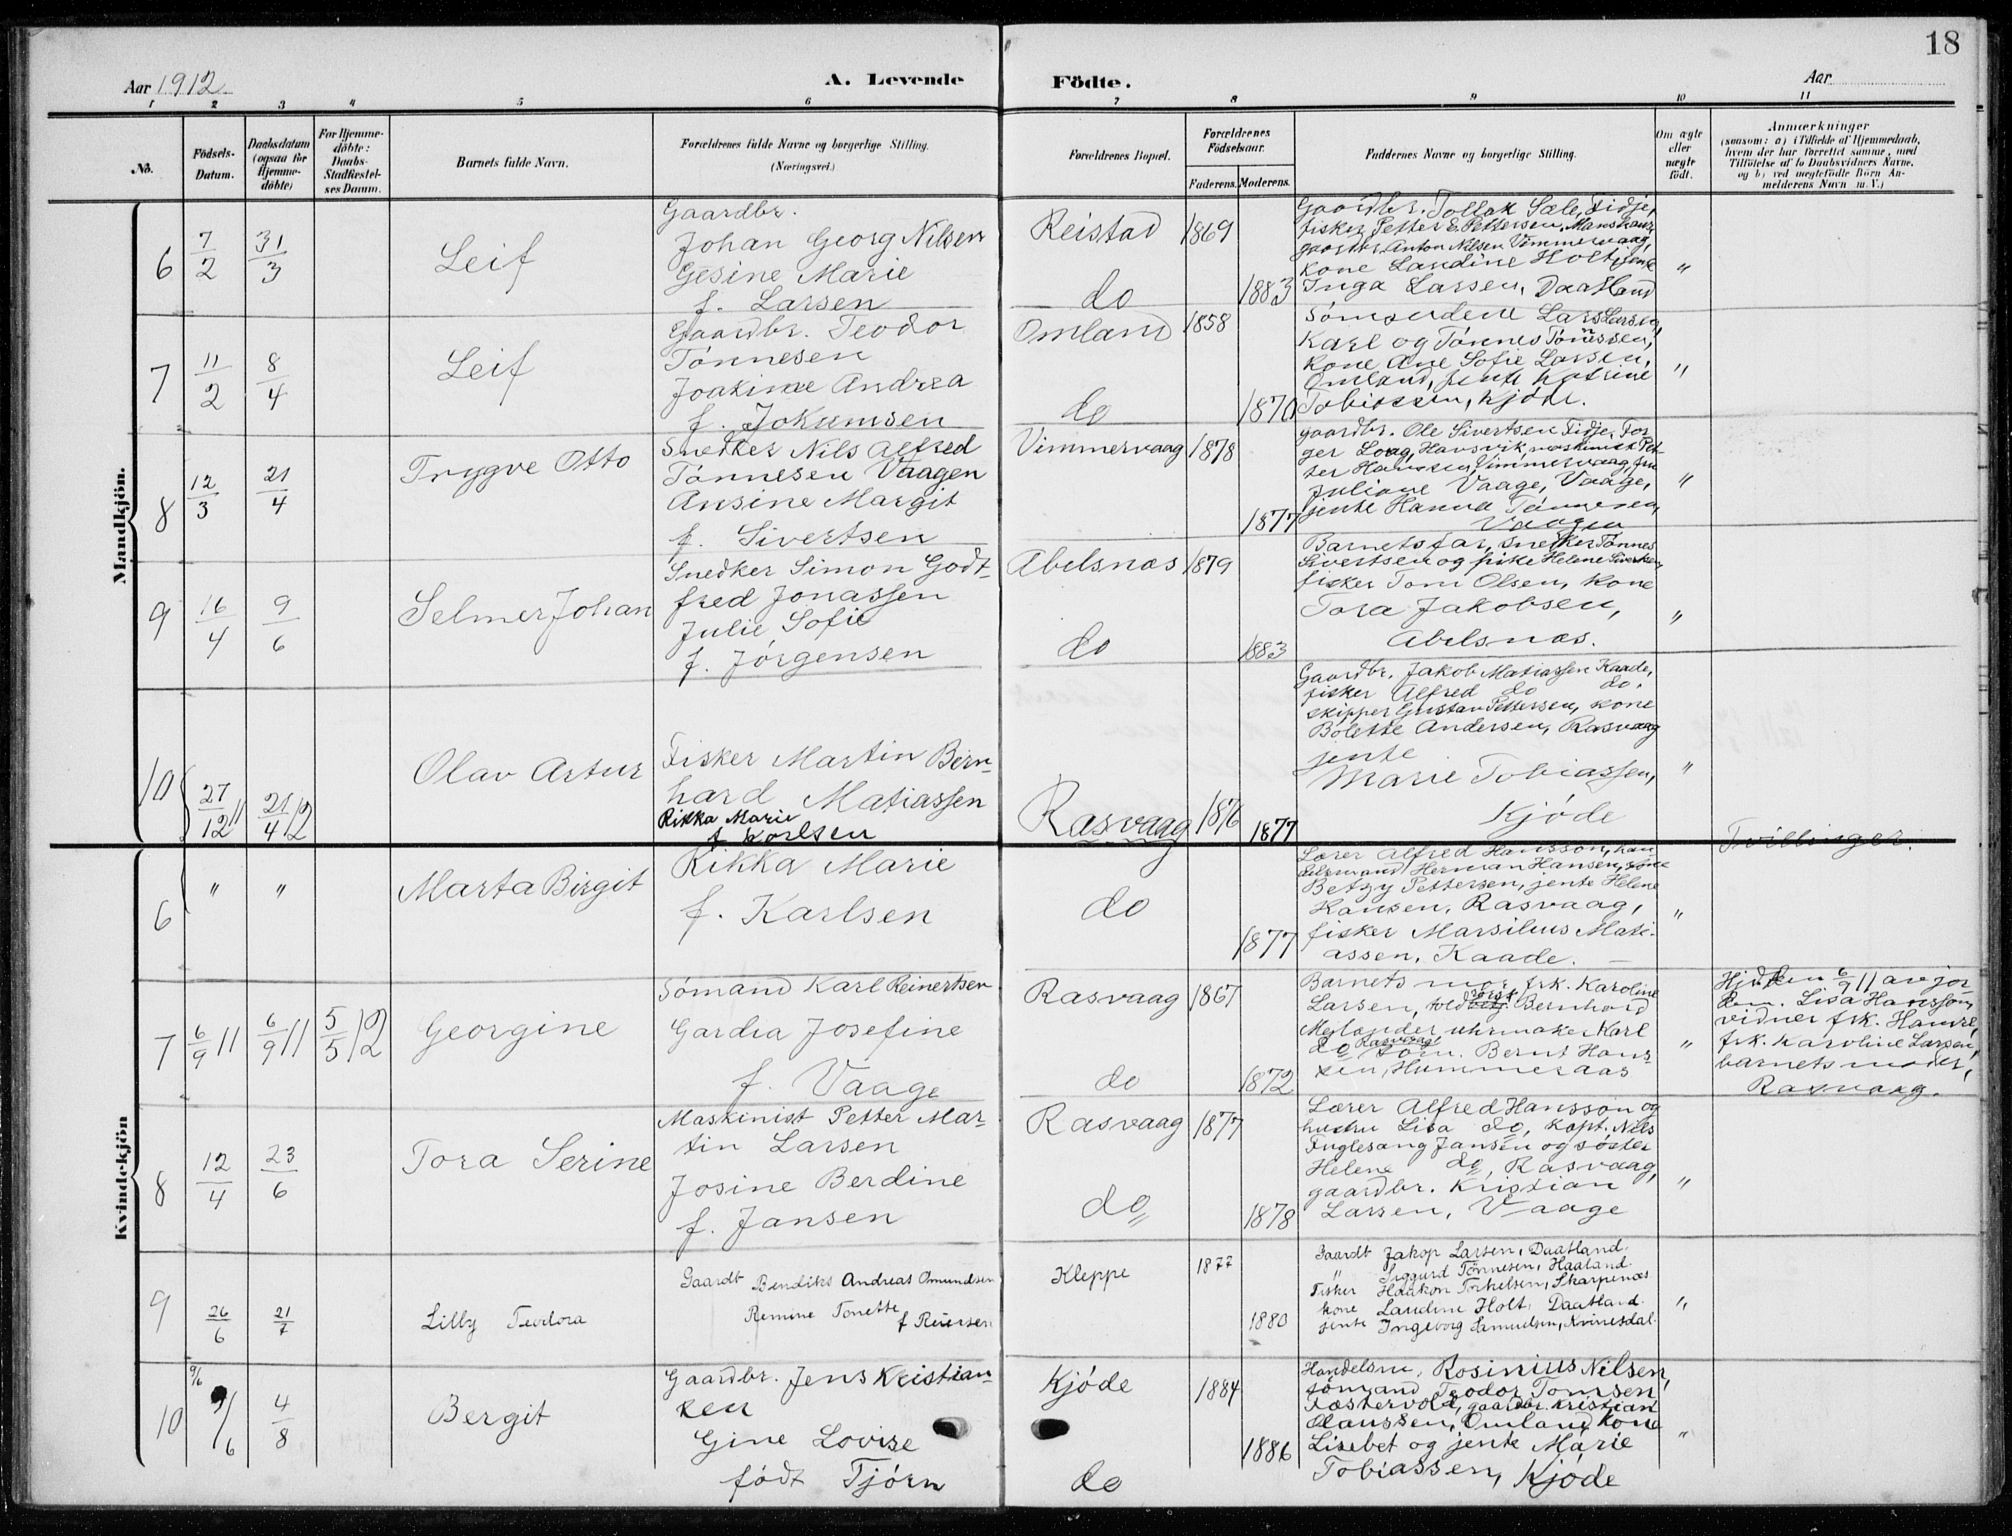 18
Aar 1912.
A. Levende Födte.
Aar
1 2 3 4 5 6 7 8 9 10 11
No.
Födsels-Datum.
Daabsdatum (ogsaa for Hjemme-döbte)
For Hjemme-döbte: Daabs-Stadfæstel-ses Datum.
Barnets fulde Navn.
Forældrenes fulde Navne og borgerlige Stilling.
(Næringsvei.)
Forældrenes Bopæl.
Forældrenes Födselsaar.
Faderens. Moderens.
Faddernes Navne og borgerlige Stilling.
Om ægte eller uægte födt.
Anmærkninger
(saasom: a) i Tilfælde af Hjemmedaab,
hvem der har forrettet samme, med
Tilföielse af to Daabsvidners Navne,
og b) ved uægtefödte Börn An-
melderens Navn m. V.)
Mandkjön.
6 7/2 31/3 Leif
Gaardbr.
Johan Georg Nilsen
Gesine Marie
f. Larsen
Reistad 1869
do 1883
Gaardbr. Tollak Sæle, Fidje,
fisker Petter E. Pettersen,
gaardbr. Anton Nilsen Vimmervaag,
kone Landine Holt, jente
Inga Larsen, Daatland
"
7 11/2 8/4 Leif
Gaardbr. Teodor
Tønnesen
Joakime Andrea
f. Jokumsen
Omland 1858
do 1870
Lars Larsen,
Karl og Tønnes Tønnessen,
kone Ane Sofie Larsen,
Omland, jente Katrine
Tobiassen, Kjøde.
"
8 12/3 21/4 Trygve Otto
Snedker Nils Alfred
Tønnesen Vaagen
Ansine Margit
f. Sivertsen
Vimmervaag 1878
1877
gaardbr. Ole Sivertsen Fidje, Tor
ger Log, Hausvik, maskinist Pet-
ter Hansen, Vimmervaag, fru
Juliane Vaage, Vaage,
jente Hanna Tønnesen,
Vaagen
"
9 16/4 9/6 Selmer Johan
Snedker Simon Godt-
fred Jonassen
Julie Sofie
f. Jørgensen
Abelsnæs 1879
do 1883
Barnets far, snedker Tønnes
Sivertsen og pike Helene Sivertsen,
fisker Tom Olsen, kone
Tora Jakobsen,
Abelsnæs.
"
10 27/12 11 21/4 12 Olav Artur
Fisker Martin Bern-
hard Matiassen
Rikka Marie
f Karlsen
Rasvaag 1876
1877
Gaardbr. Jakob Matiassen Kaade,
fisker Alfred do do.
skipper Gustav Pettersen, kone
Bolette Andersen, Rasvaag
jente
Marie Tobiassen,
Kjøde
"
Tvillinger.
Kvindekjön
6 " " Marta Birgit
Rikka Marie
f. Karlsen
do
1877
Lærer Alfred Hansson, han
delsmand Herman Hansen, kone
Betzy Pettersen, jente Helene
Hansen, Rasvaag,
fisker Marsilius Mati-
assen, Kaade.
"
7 6/9 11 6/9 11 5/5 12 Georgine
Sømand Karl Reinertsen
Gardia Josefine
f. Vaage
Rasvaag 1867
do 1872
Barnets mor, frk. Karoline
Larsen, Bernhard
Meylænder, uhrmaker Karl
do Rasvaag Bernt Hans-
sen, Hummeraas
"
Hjd. den 6/9 11 av jor-
dem. Lisa Hansson,
vidner frk.
frk. Karoline Larsen,
barnets moder,
Rasvaag.
8 12/4 23/6 Tora Serine
Maskinist Petter Mar-
tin Larsen
Josine Berdine
f. Jansen
Rasvaag 1877
do 1878
Lærer Alfred Hansson og
hustru Lisa do, kapt. Nils
Fuglesang Jansen og søster
Helene do, Rasvaag,
gaardbr. Kristian
Larsen, Vaage
"
9 26/6 21/7 Lilly Teodora
Gaardt Bendiks Andreas Omundsen
Remine Tonette
f Reiersen
Kleppe 1877
1880
Gaardt Jakop Larsen, Daatland.
" Siggurd Tønnesen, Haaland.
Fisker Haakon Torkelsen, Skarpenæs.
kone Landine Holt, Daatland.
jente Ingeborg Samuelsen, Kvinesdal.
"
10 9/6 9/6 4/8 Bergit
Gaardbr. Jens Kristian-
sen
Gine Lovise
født Tjørn
Kjøde 1884
do 1886
Handelsm. Rosinius Nilsen,
sømand Teodor Tomsen
gaardbr. Kristian
Olaussen, Omland, kone
Lisebet og jente Marie
Tobiassen, Kjøde
"